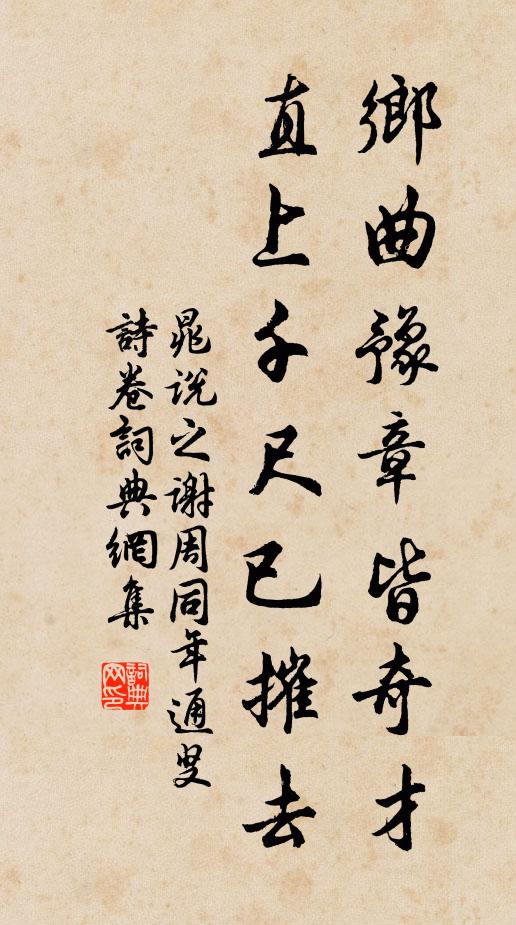 鄉曲豫章皆奇才
直上千尺已摧去
晁說之謝周同年通叟
詩卷詞典網集
詞典網印